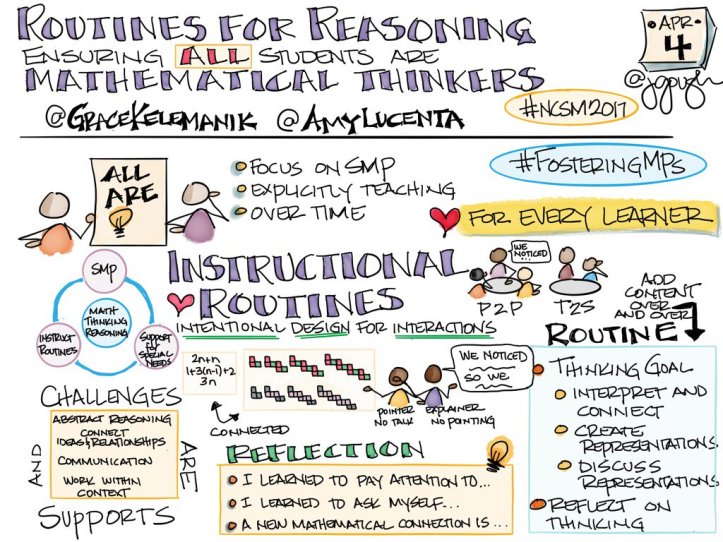 ROUTINES FOR REASONING
ENSURING ALL STUDENTS ARE
MATHEMATICAL THINKERS
@GRACEKELEMANIK @AMYLUCENTA
APR
4
@jgough
#NCSM2017
#FOSTERINGMPs
ALL
ARE
FOCUS ON SMP
EXPLICITLY TEACHING
OVER TIME
FOR EVERY LEARNER
SMP
MATH
THINKING
REASONING
INSTRUCT
ROUTINES
SUPPORT
FOR
SPECIAL
NEEDS
INSTRUCTIONAL
ROUTINES
INTENTIONAL DESIGN FOR INTERACTIONS
WE
NOTICED
P2P
T2S
ADD
CONTENT
OVER
AND OVER
2n+n
1+3(n-1)+2
3n
CONNECTED
WE NOTICED
SO WE
POINTER
NO TALK
EXPLAINER
NO POINTING
CHALLENGES
AND
ABSTRACT REASONING
CONNECT
IDEAS & RELATIONSHIPS
COMMUNICATION
WORK WITHIN
CONTEXT
ARE
SUPPORTS
REFLECTION
I LEARNED TO PAY ATTENTION TO...
I LEARNED TO ASK MYSELF...
A NEW MATHEMATICAL CONNECTION IS...
ROUTINE
THINKING GOAL
INTERPRET AND
CONNECT
CREATE
REPRESENTATIONS
DISCUSS
REPRESENTATIONS
REFLECT ON
THINKING